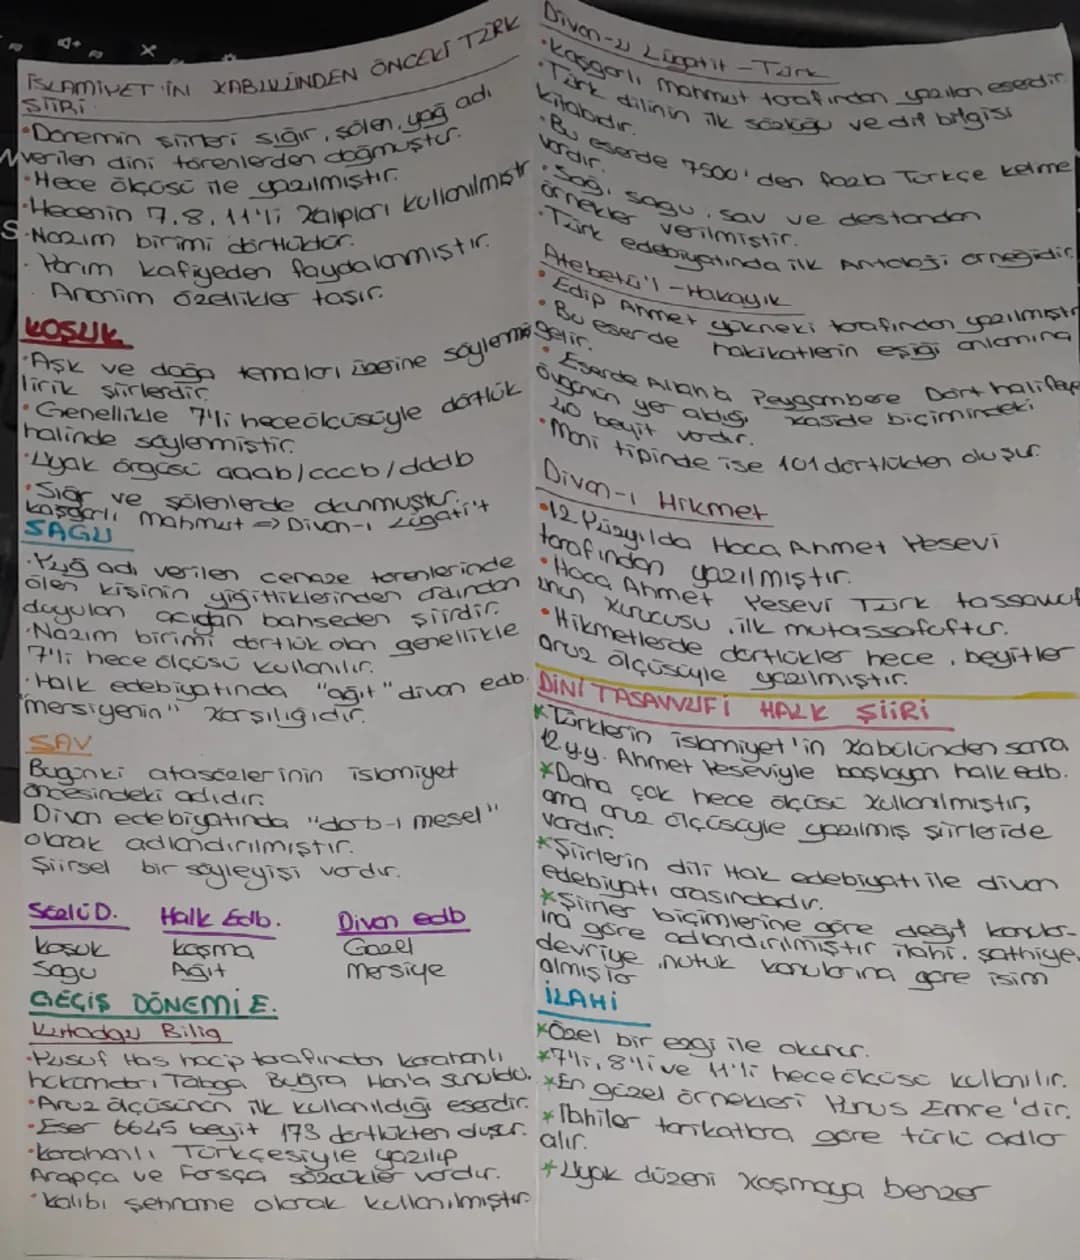 İSLAMİYET'İN KABULÜNDEN ÖNCEKİ TÜRK
ŞİİRİ
•Dönemin şiirleri sığır, şölen, yoğ adı
verilen dini törenlerden doğmuştur.
•Hece ölçüsü ile yazılmıştır.
•Hecenin 7, 8, 11'li kalıpları kullanılmıştır
•Nazım birimi dörtlüktür.
• Yarım kafiyeden faydalanmıştır.
• Anonim özellikler taşır.
KOŞUK
•Aşk ve doğa temaları üzerine söylenmiş
lirik şiirlerdir.
•Genellikle 7'li hece ölçüsüyle dörtlük
halinde söylenmiştir.
•Uyak örgüsü aaab/cccb/dddb
•Sığır ve şölenlerde okunmuştur.
Kaşgarlı Mahmut => Divan-ı Lügati't
SAGU
•Yuğ adı verilen cenaze törenlerinde
ölen kişinin yiğitliklerinden ardından
duyulan acıdan bahseden şiirdir.
•Nazım birimi dörtlük olan genellikle
7'li hece ölçüsü kullanılır.
•Halk edebiyatında "ağıt" divan edb.
"mersiyenin" karşılığıdır.
SAV
Bugünki atasözlerinin islamiyet
öncesindeki adıdır.
Divan edebiyatında "darb-ı mesel"
olarak adlandırılmıştır.
Şiirsel bir söyleyişi vardır.
Sözlü D. Halk Edb. Divan edb
Koşuk Koşma Gazel
Sagu Ağıt Mersiye
GEÇİŞ DÖNEMİ E.
Kutadgu Bilig
•Yusuf Has hacip tarafından Karahanlı
hükümdarı Tabga Buğra Han'a sunuldu.
•Aruz ölçüsünün ilk kullanıldığı eserdir.
•Eser 6645 beyit 173 dörtlükten oluşur.
•Karahanlı Türkçesiyle yazılıp
Arapça ve Farsça sözcükler vardır.
•Kalıbı şehname olarak kullanılmıştır
Divan-ü Lügatit-Türk
•Kaşgarlı Mahmut tarafından yazılan eserdir
•Türk dilinin ilk sözlüğü ve dil bilgisi
kitabıdır.
•Bu eserde 7500'den fazla Türkçe kelime
vardır.
•Sağı, sagu, sav ve destandan
örnekler verilmiştir.
•Türk edebiyatında ilk Antoloji örneğidir
Atebetü'l-Hakayık
•Edip Ahmet yükneki tarafından yazılmıştır
•Bu eserde hakikatlerin eşiği anlamına
gelir.
•Eserde Allah'a Peygambere Dört halifeye
övgünün yer aldığı, kaside biçimindeki
40 beyit vardır.
•Mani tipinde ise 101 dörtlükten oluşur.
Divan-ı Hikmet
•12. Yüzyılda Hoca Ahmet Yesevi
tarafından yazılmıştır.
•Hoca Ahmet Yesevi Türk tassavuf
unun kurucusu, ilk mutassafuftur.
•Hikmetlerde dörtlükler hece, beyitler
aruz ölçüsüyle yazılmıştır.
DİNİ TASAVVUFİ HALK ŞİİRİ
*Türklerin islamiyet'in kabulünden sonra
12.yy. Ahmet Yeseviyle başlayan halk edb.
*Daha çok hece ölçüsü kullanılmıştır,
ama aruz ölçüsüyle yazılmış şiirleride
vardır.
*Şiirlerin dili Halk edebiyatı ile divan
edebiyatı arasındadır.
*Şiirler biçimlerine göre değil konula-
rına göre adlandırılmıştır ilahi, şathiye,
devriye, nutuk konularına göre isim
almışlar
İLAHİ
*Özel bir ezgi ile okunur.
*7'li, 8'li ve 11'li hece ölçüsü kullanılır.
*En güzel örnekleri Yunus Emre'dir.
*İlahiler tarikatlara göre türlü adlar
alır.
*Uyak düzeni koşmaya benzer